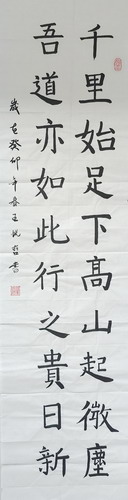 千里始足下高山起微塵
吾道亦如此行之貴日新
歲在癸卯